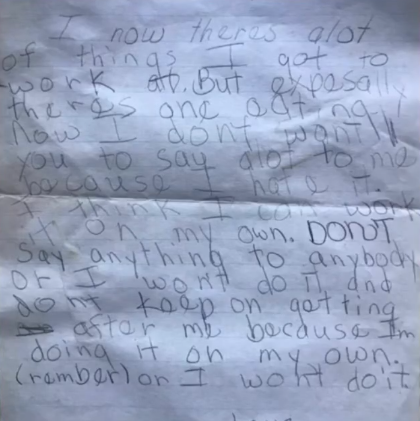 I now theres alot
of things I got to
work at. But exposally
theres one eating
now I dont want
you to say alot to me
because I hate it.
I think I can work
it on my own. DONT
say anything to anybody
or I won't do it and
don't keep on getting
after me because Im
doing it on my own.
(rember) or I won't do it